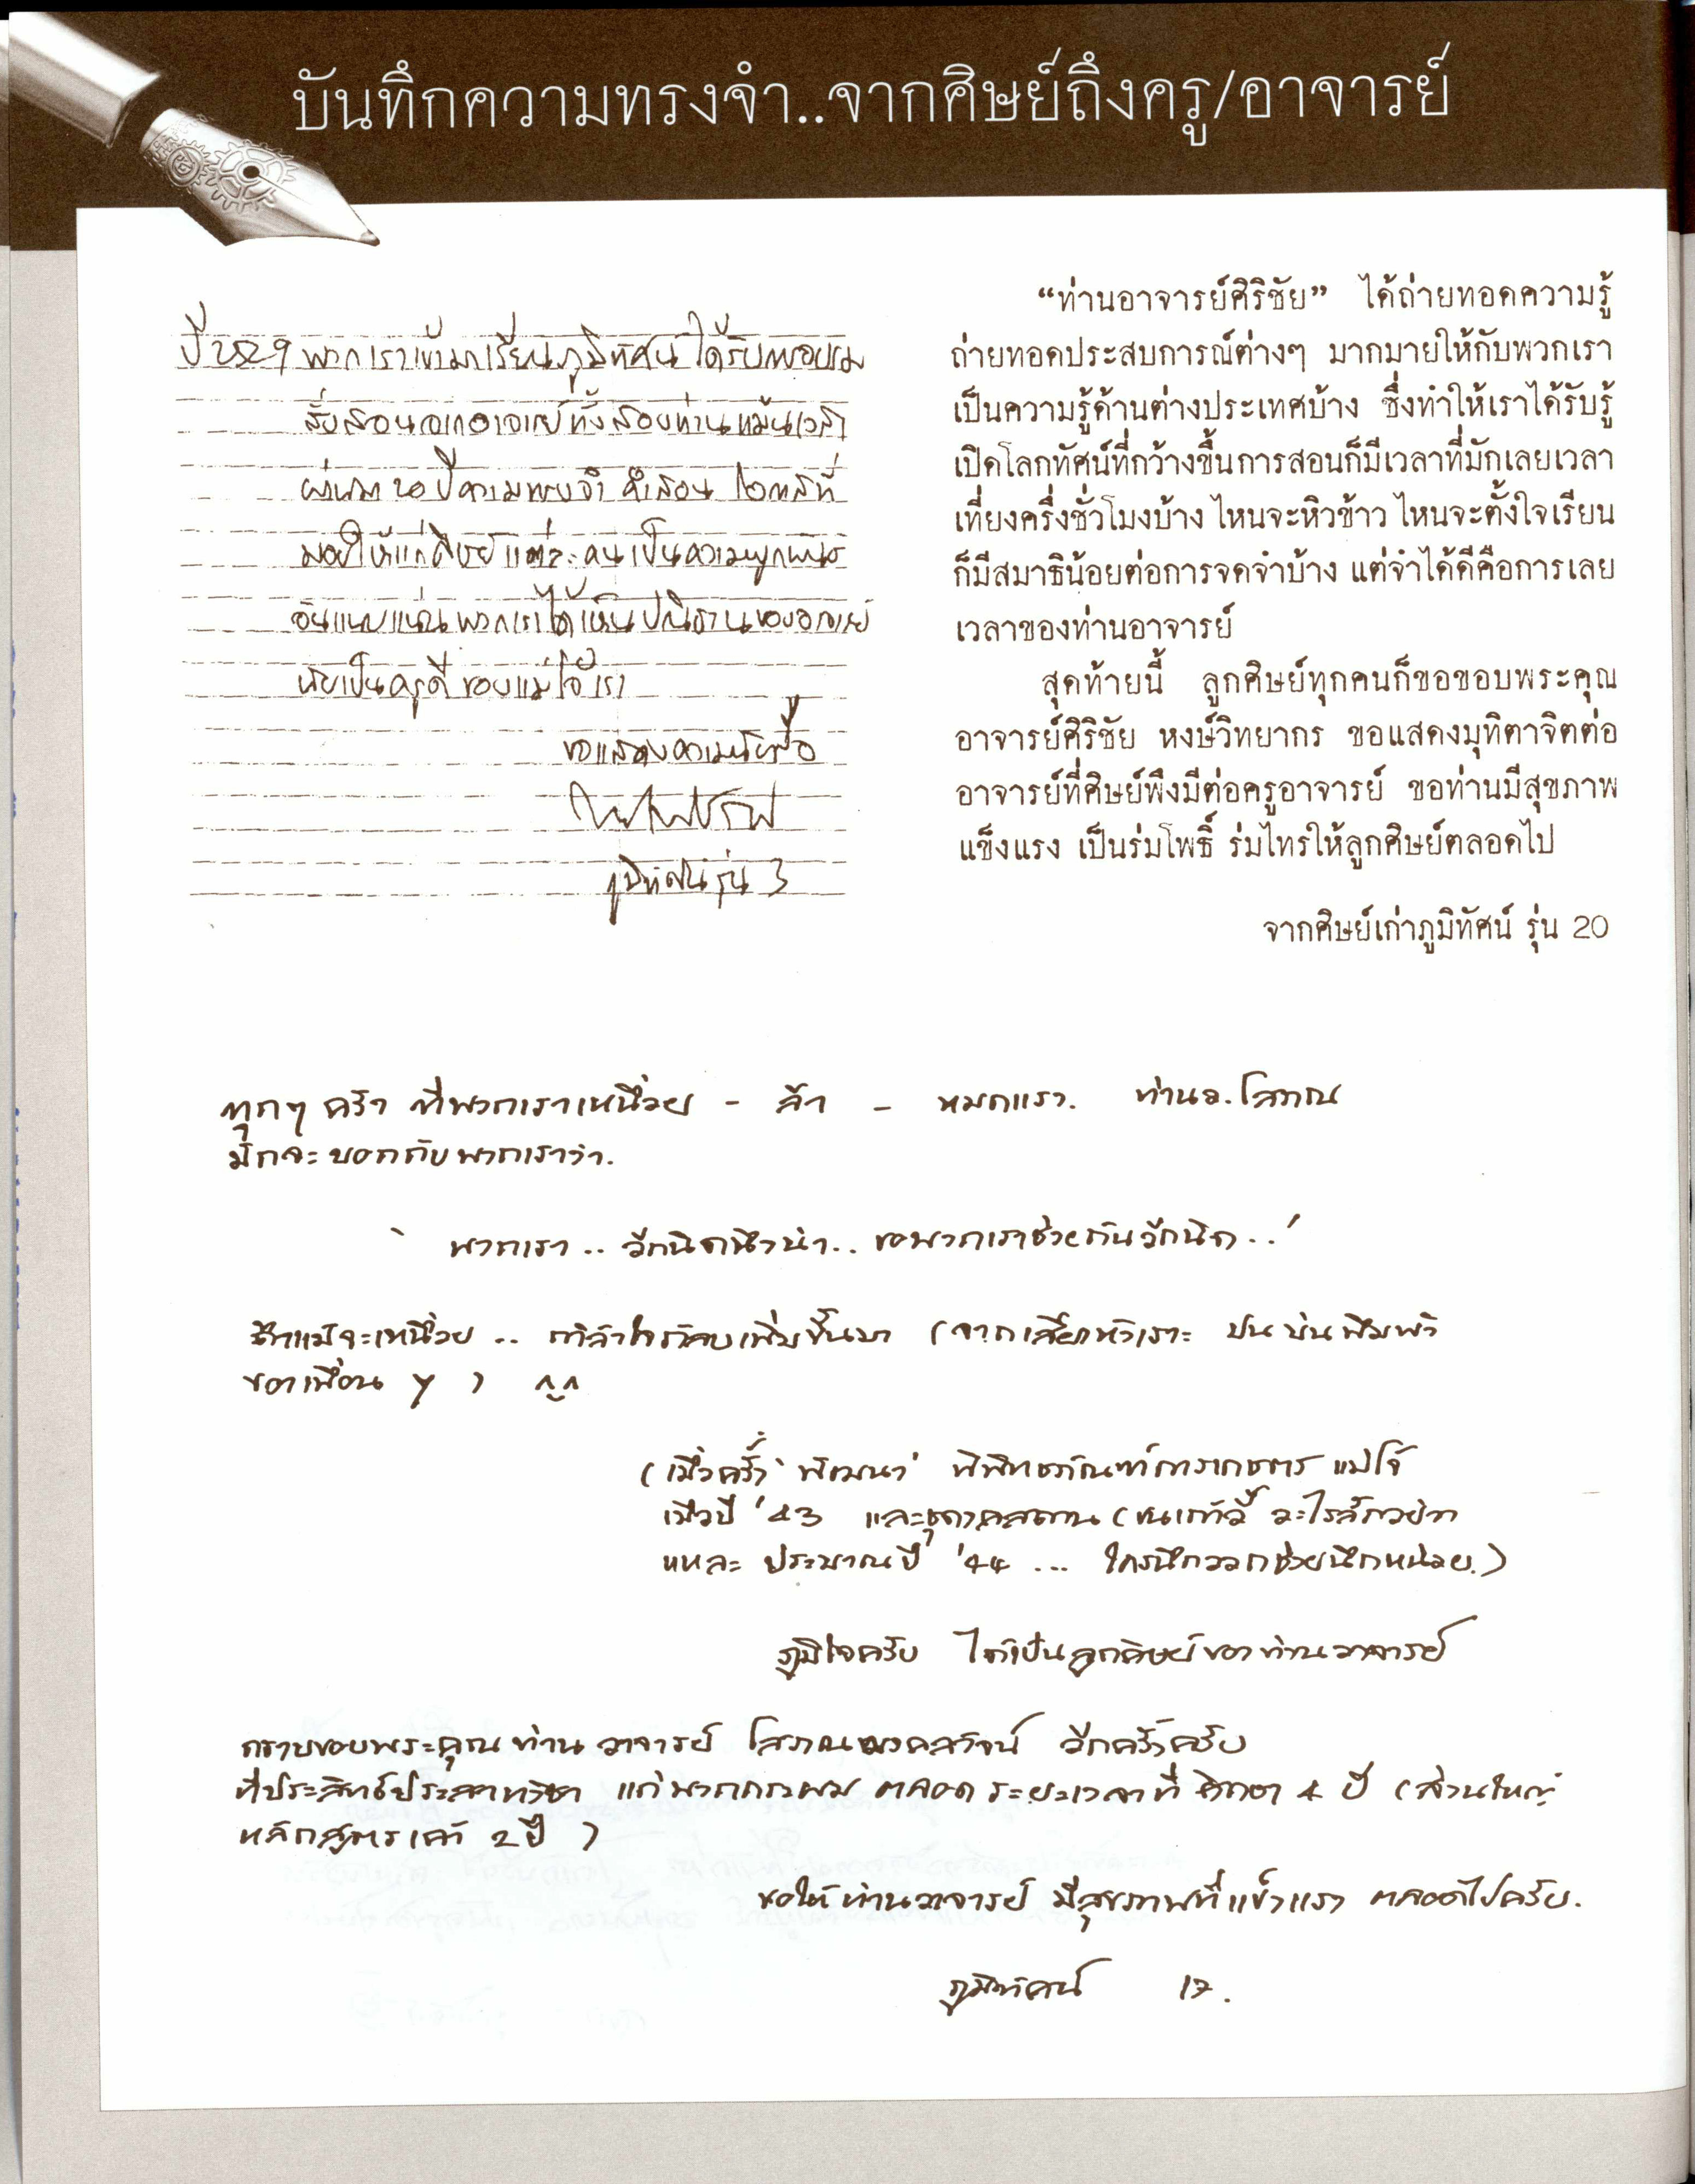 บันทึกความทรงจำ..จากศิษย์ถึงครู/อาจารย์
ปี 2529 พวกเราเข้ามาเรียนภูมิทัศน์ ได้รับการอบรม
สั่งสอนจากอาจารย์ทั้งสองท่าน แม้นเวลา
ผ่านมา 20 ปี ความทรงจำ คำสอน โอกาสที่
มอบให้แก่ศิษย์แต่ละคนเป็นความผูกพัน
อันแนบแน่น พวกเราได้เห็นปณิธานของอาจารย์
เป็นครูดี ของแม่โจ้เรา
ขอแสดงความนับถือ
ภูมิทัศน์ รุ่น 3
“ท่านอาจารย์ศิริชัย” ได้ถ่ายทอดความรู้
ถ่ายทอดประสบการณ์ต่างๆ มากมายให้กับพวกเรา
เป็นความรู้ด้านต่างประเทศบ้าง ซึ่งทำให้เราได้รับรู้
เปิดโลกทัศน์ที่กว้างขึ้นการสอนก็มีเวลาที่มักเลยเวลา
เที่ยงครึ่งชั่วโมงบ้าง ไหนจะหิวข้าว ไหนจะตั้งใจเรียน
ก็มีสมาธิน้อยต่อการจดจำบ้าง แต่จำได้ดีคือการเลย
เวลาของท่านอาจารย์
สุดท้ายนี้ ลูกศิษย์ทุกคนก็ขอขอบพระคุณ
อาจารย์ศิริชัย หงษ์วิทยากร ขอแสดงมุทิตาจิตต่อ
อาจารย์ที่ศิษย์พึงมีต่อครูอาจารย์ ขอท่านมีสุขภาพ
แข็งแรง เป็นร่มโพธิ์ ร่มไทรให้ลูกศิษย์ตลอดไป
จากศิษย์เก่าภูมิทัศน์ รุ่น 20
ทุกๆ ครั้ง ที่พวกเราเหนื่อย - ล้า - หมดแรง. ท่านอ.โสภณ
มักจะบอกกับพวกเราว่า.
‘ พวกเรา .. อีกนิดนึงน่า .. ขอพวกเราช่วยกันอีกนิด ..’
ถึงแม้จะเหนื่อย .. กำลังใจกลับเพิ่มขึ้นมา (จากเสียงหัวเราะ ปนบ่นพึมพำ
ของเพื่อน ๆ ) ^_^
(เมื่อครั้ง ‘พัฒนา’ พิพิธภัณฑ์การเกษตร แม่โจ้
เมื่อปี '43 และ (ขนเก้าอี้ อะไรสักอย่าง
แหละ ประมาณปี '44 ... ใครนึกออกช่วยนึกหน่อย.)
ภูมิใจครับ ได้เป็นลูกศิษย์ของท่านอาจารย์
กราบขอบพระคุณท่าน อาจารย์ โสภณ มงคลวัจน์ อีกครั้งครับ
ที่ประสิทธิ์ประสาทวิชา แก่พวกกระผม ตลอดระยะเวลาที่ศึกษา 4 ปี (ส่วนใหญ่
หลักสูตรเก่า 2 ปี )
ขอให้ท่านอาจารย์ มีสุขภาพที่แข็งแรง ตลอดไปครับ.
ภูมิทัศน์ 17.